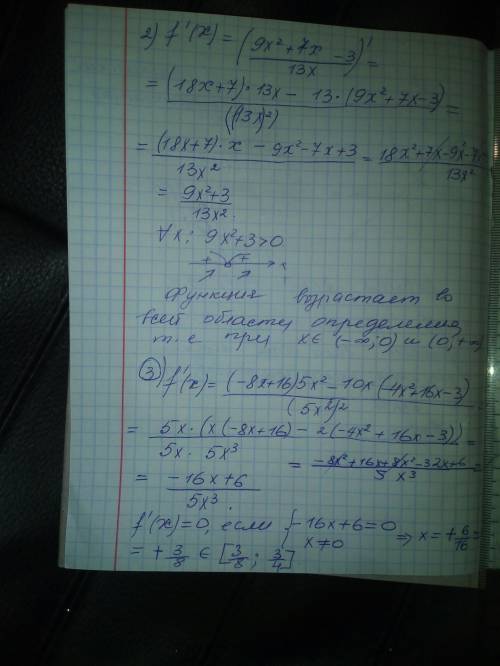 2) f'(x) = ((9x²+7x-3)/(13x))' =
= ((18x+7)·13x - 13·(9x²+7x-3))/((13x)²) =
= ((18x+7)·x - 9x²-7x+3)/(13x²) = (18x²+7x-9x²-7x)/(13x²)
= (9x²+3)/(13x²).
∀x: 9x²+3>0
+ + x
Функция возрастает во
всей области определения,
т.е при x∈ (-∞;0) и (0;+∞)
3) f'(x) = ((-8x+16)5x² - 10x(-4x²+16x-3))/((5x²)²)
= (5x·(x(-8x+16) - 2(-4x²+16x-3)))/(5x·5x³) =
= (-8x²+16x+8x²-32x+6)/(5x³) =
= (-16x+6)/(5x³).
f'(x)=0, если { -16x+6=0 x≠0 ⇒ x=+6/16=
= +3/8 ∈ [3/8; 3/4]